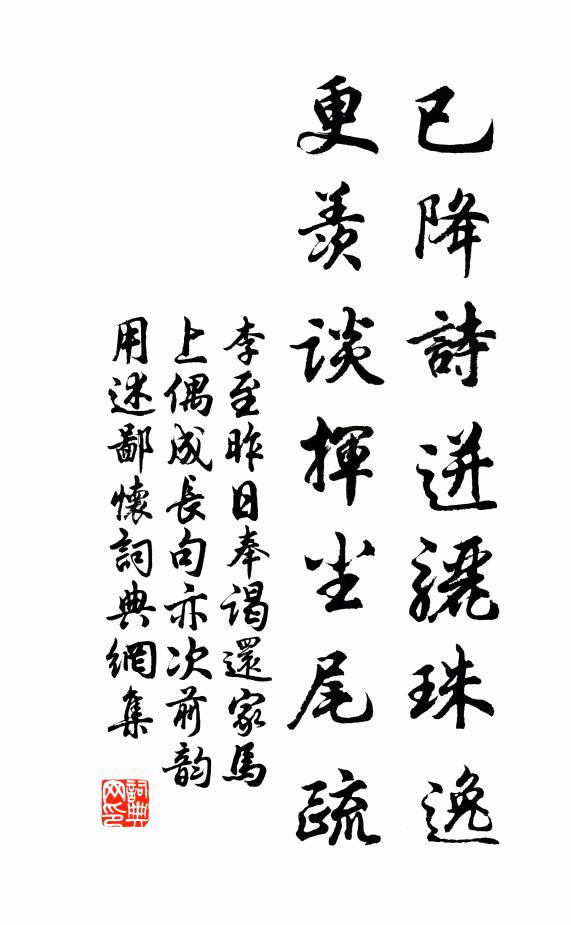 已降詩迸驪珠逸
更羨談揮尘尾疏
李至昨日奉謁還家馬
上偶成長句亦次前韵
用述鄙懷詞典網集
詞典
网印